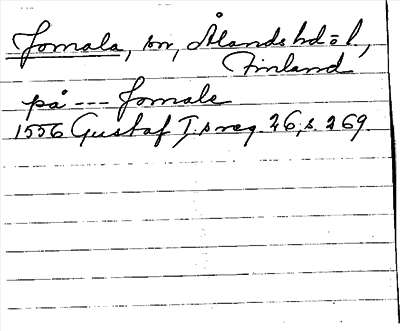 Jomala, sn, Ålands hd ö l.,
Finland
på --- Jomale
1556 Gustaf I:s reg. 26, s. 269.